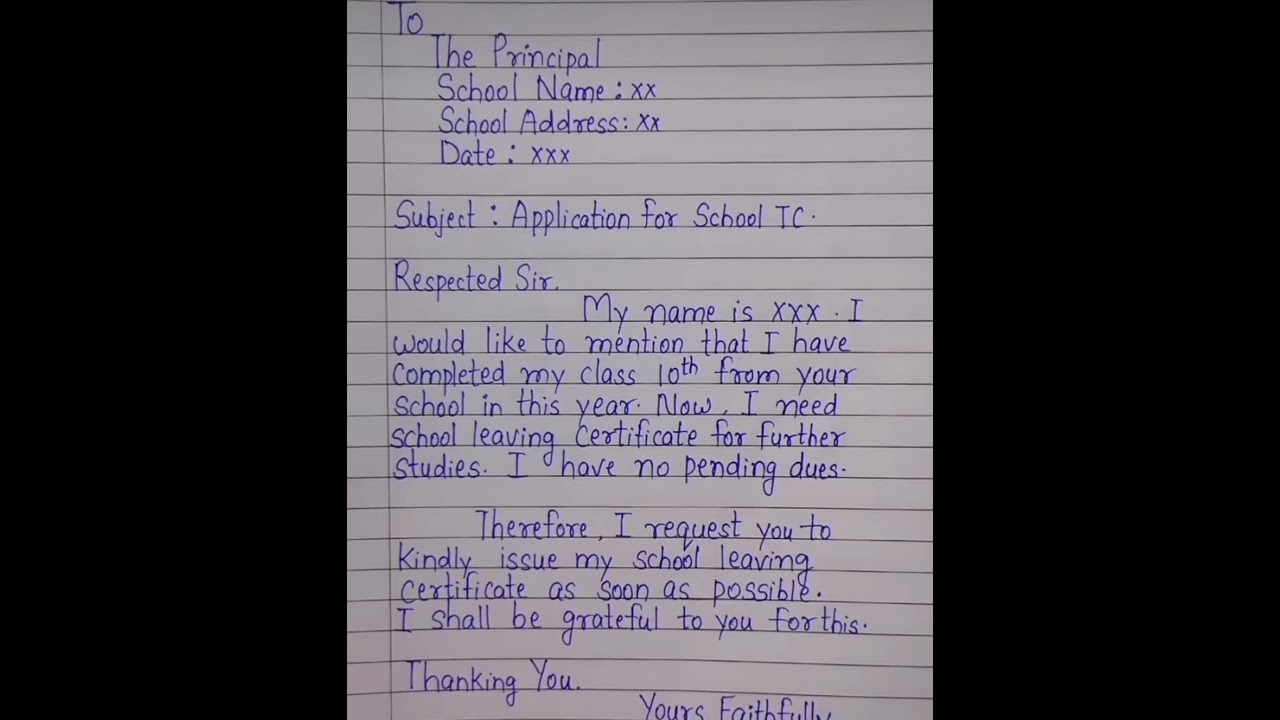 To
The Principal
School Name : xx
School Address: xx
Date : xxx
Subject : Application for School TC.
Respected Sir.
My name is xxx . I
would like to mention that I have
completed my class 10th from your
school in this year. Now, I need
school leaving certificate for further
studies. I have no pending dues.
Therefore, I request you to
kindly issue my school leaving
certificate as soon as possible.
I shall be grateful to you for this.
Thanking You.
Yours Faithfully